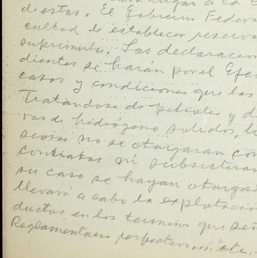 de estas. El Gobierno Federa
cultad de establecer reserva
suprimirlas. Las declaracion
dientes se harán por el Ejec
casos y condiciones que las
Tratándose de petróleo y d
ros de hidrógeno sólidos, l
seosos no se otorgarán con
contratos ni subsistirán
su caso se hayan otorgad
llevará a cabo la explotación
ductos en los términos que señ
Reglamentaria respectiva